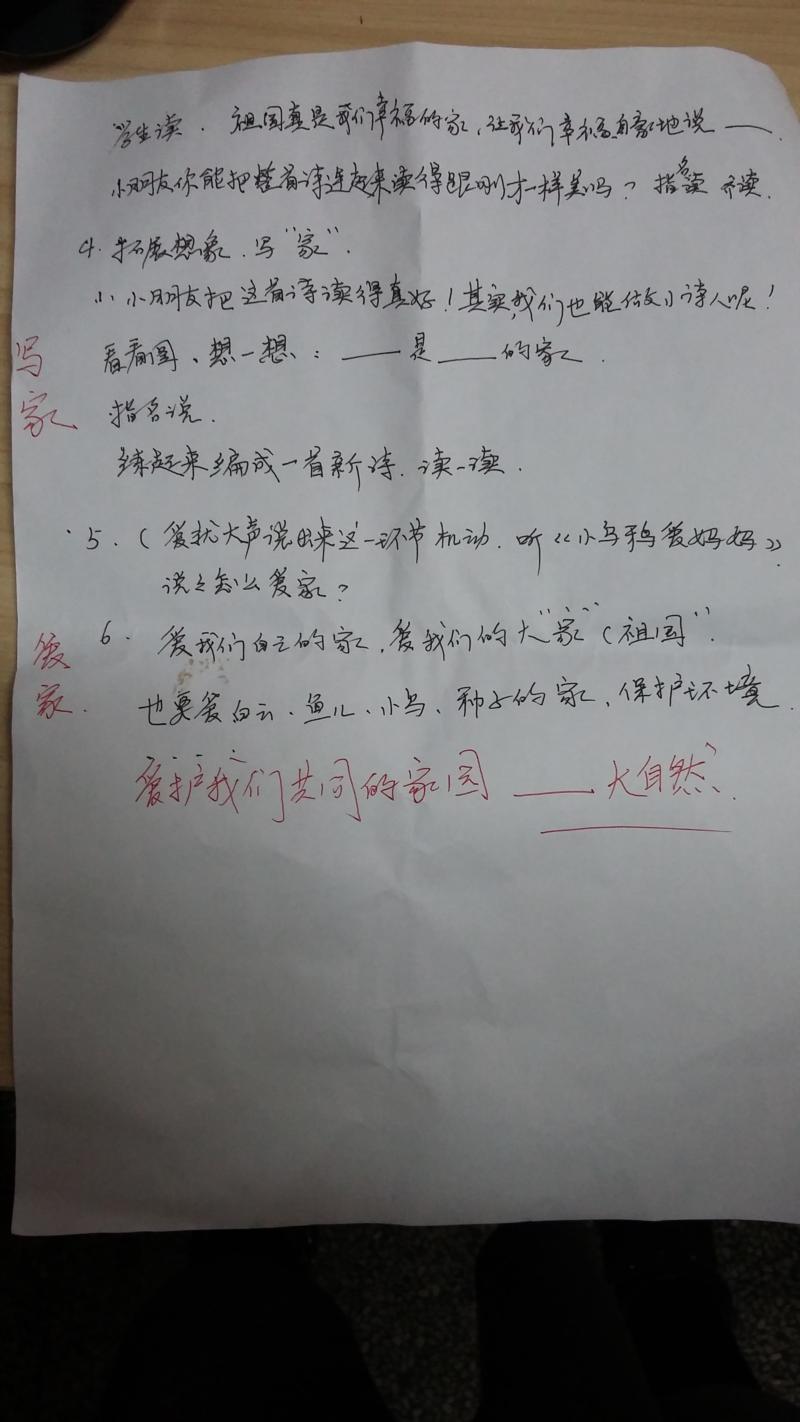 学生读. 祖国真是我们幸福的家,让我们幸福自豪地说——
小朋友你能把整首诗连起来读得跟刚才一样美吗?指名读 齐读.
4. 拓展想象.写"家".
小小朋友把这首诗读得真好!其实,我们也能做小诗人呢!
写家
看看图、想一想,:——是——的家.
指名说.
练起来编成一首新诗.读一读.
5.(爱就大声说出来这一环节机动.听《小乌鸦爱妈妈》
说之怎么爱家?
爱家.
6. 爱我们自己的家,爱我们的大"家"(祖国".
也要爱白云、鱼儿、小鸟、种子的家,保护环境.
爱护我们共同的家园——大自然.